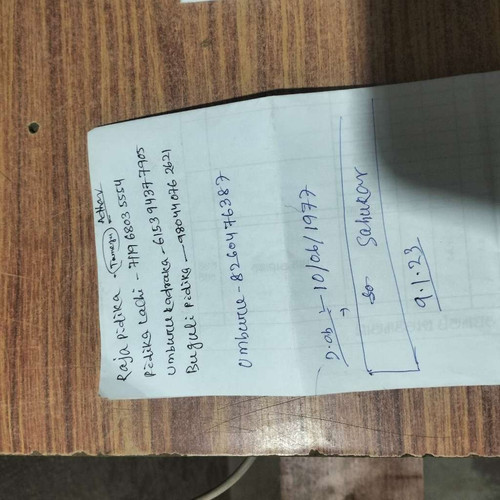 Raja Pidika - (Tamezu) Adhar
Pidika Lachi - 7119 6803 5554
Umburu Kadraka - 6153 9437 7905
Buguli Pidika - 9804 4076 2621
Umburu - 8260476387
D.ob :- 10/06/1977
so Sahukar
9.1.23